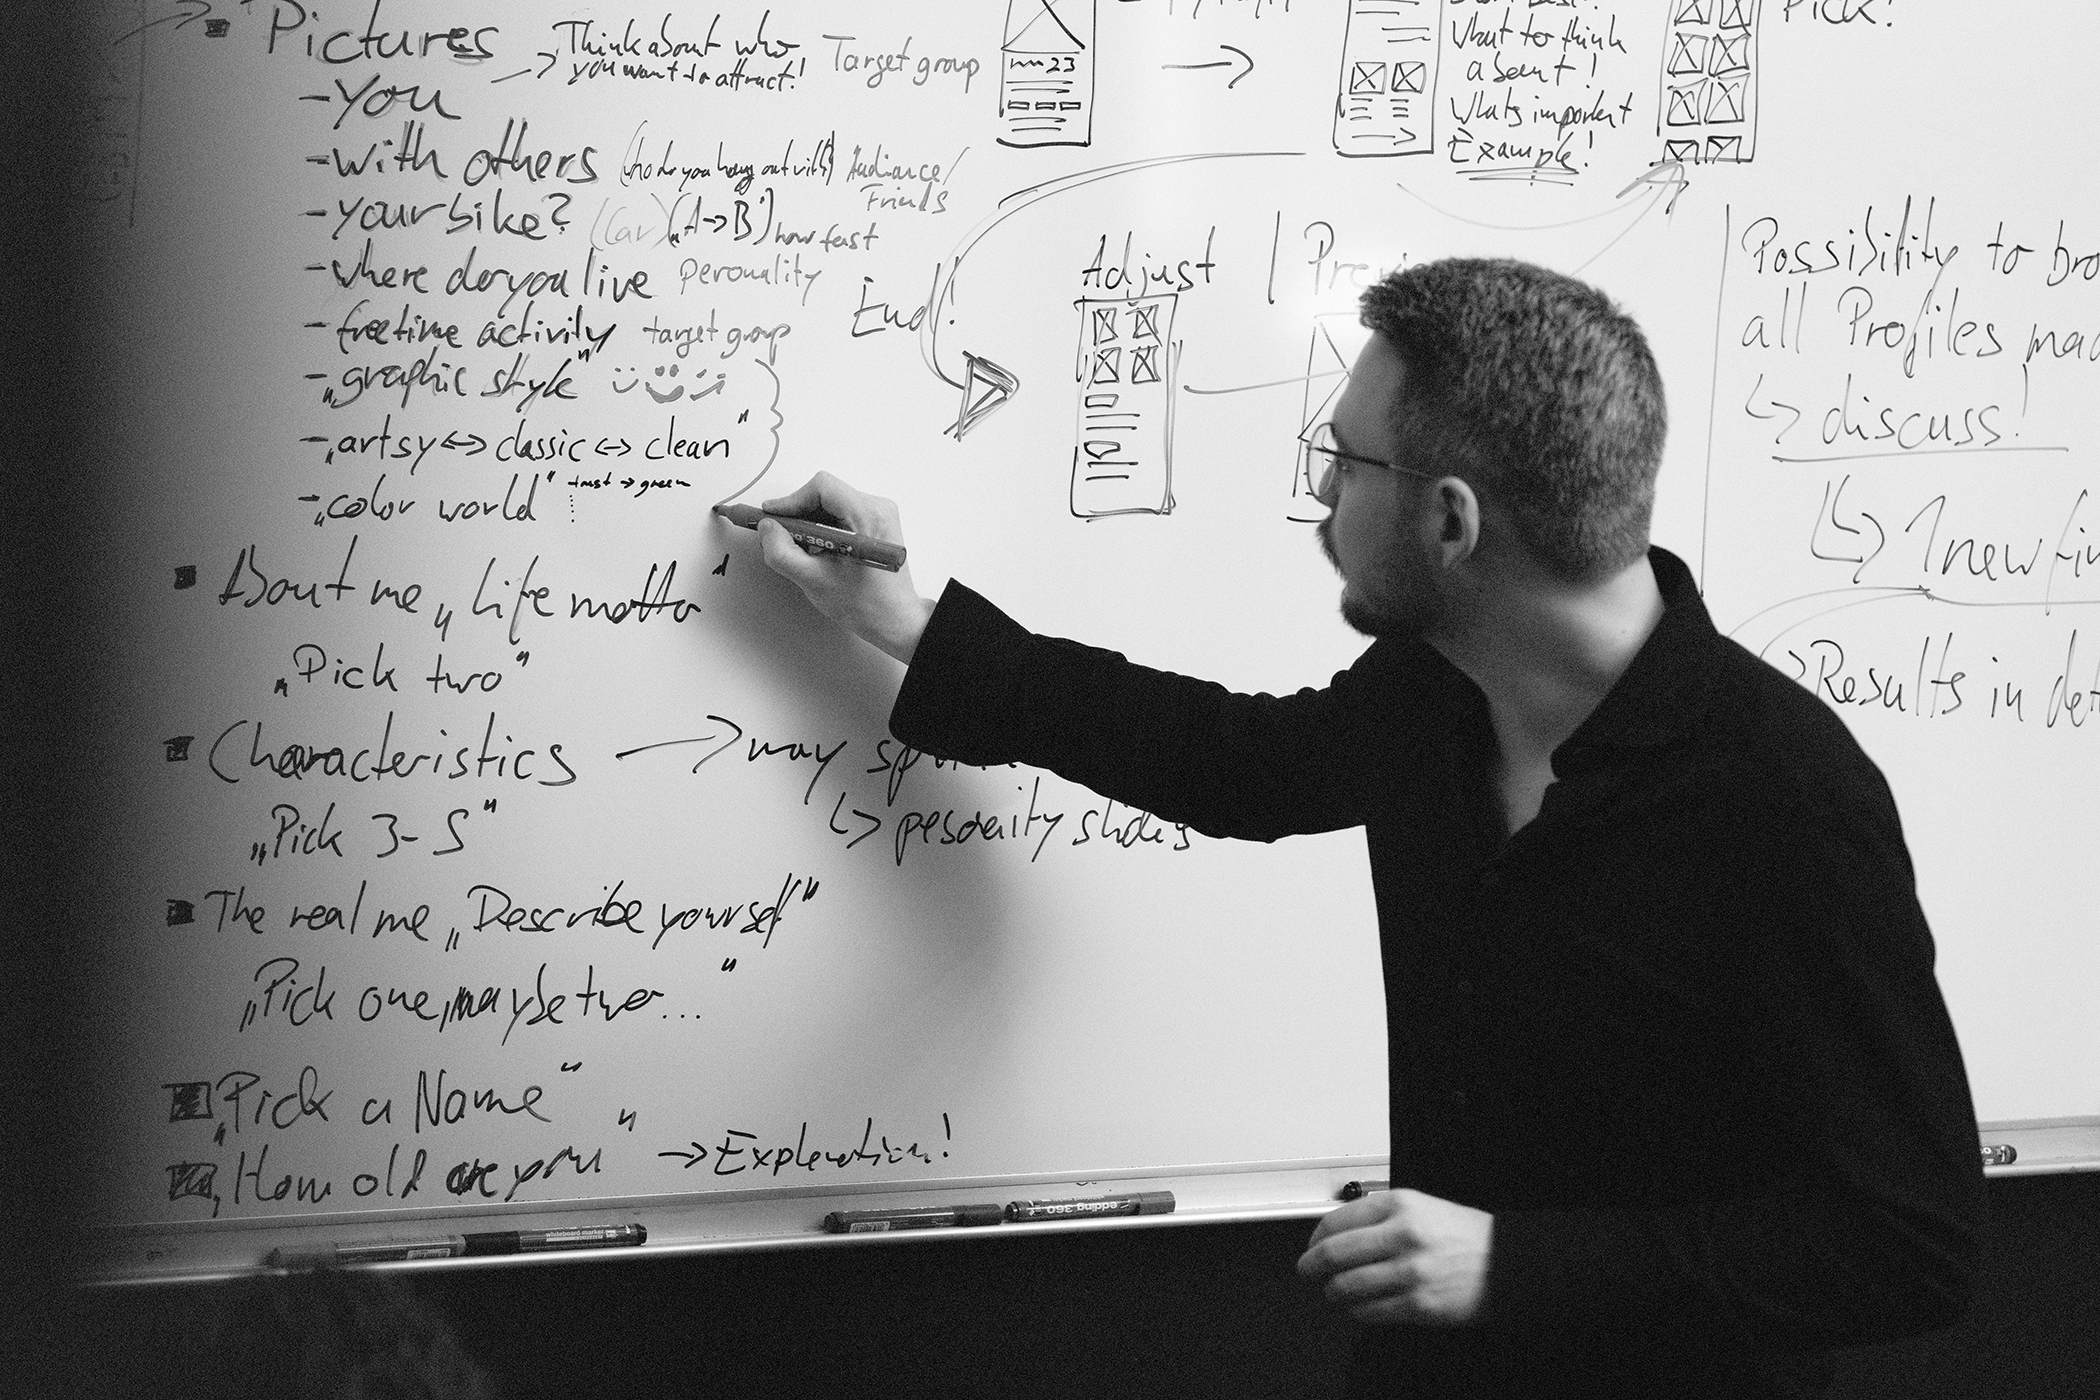 Pictures
→ Think about who you want to attract! Target group
- you
- with others (who do you hang out with) Audiance/ Friends
- your bike? (Car) („A→B") how fast
- where do you live
- freetime activity target group
- „graphic style"
- „artsy ↔ classic ↔ clean"
- „color world" trust → green
About me „Life motto"
„Pick two"
Characteristics → may
↳
„Pick 3-5"
The real me „Describe yourself"
„Pick one, maybe two..."
„Pick a Name"
„How old are you" →
23
What to think about!
Whats important
Example!
Pick!
End!
Adjust
Possibility to
all Profiles
↳ discuss!
↳ 1 new
Results in
edding 360
whiteboard marker
360